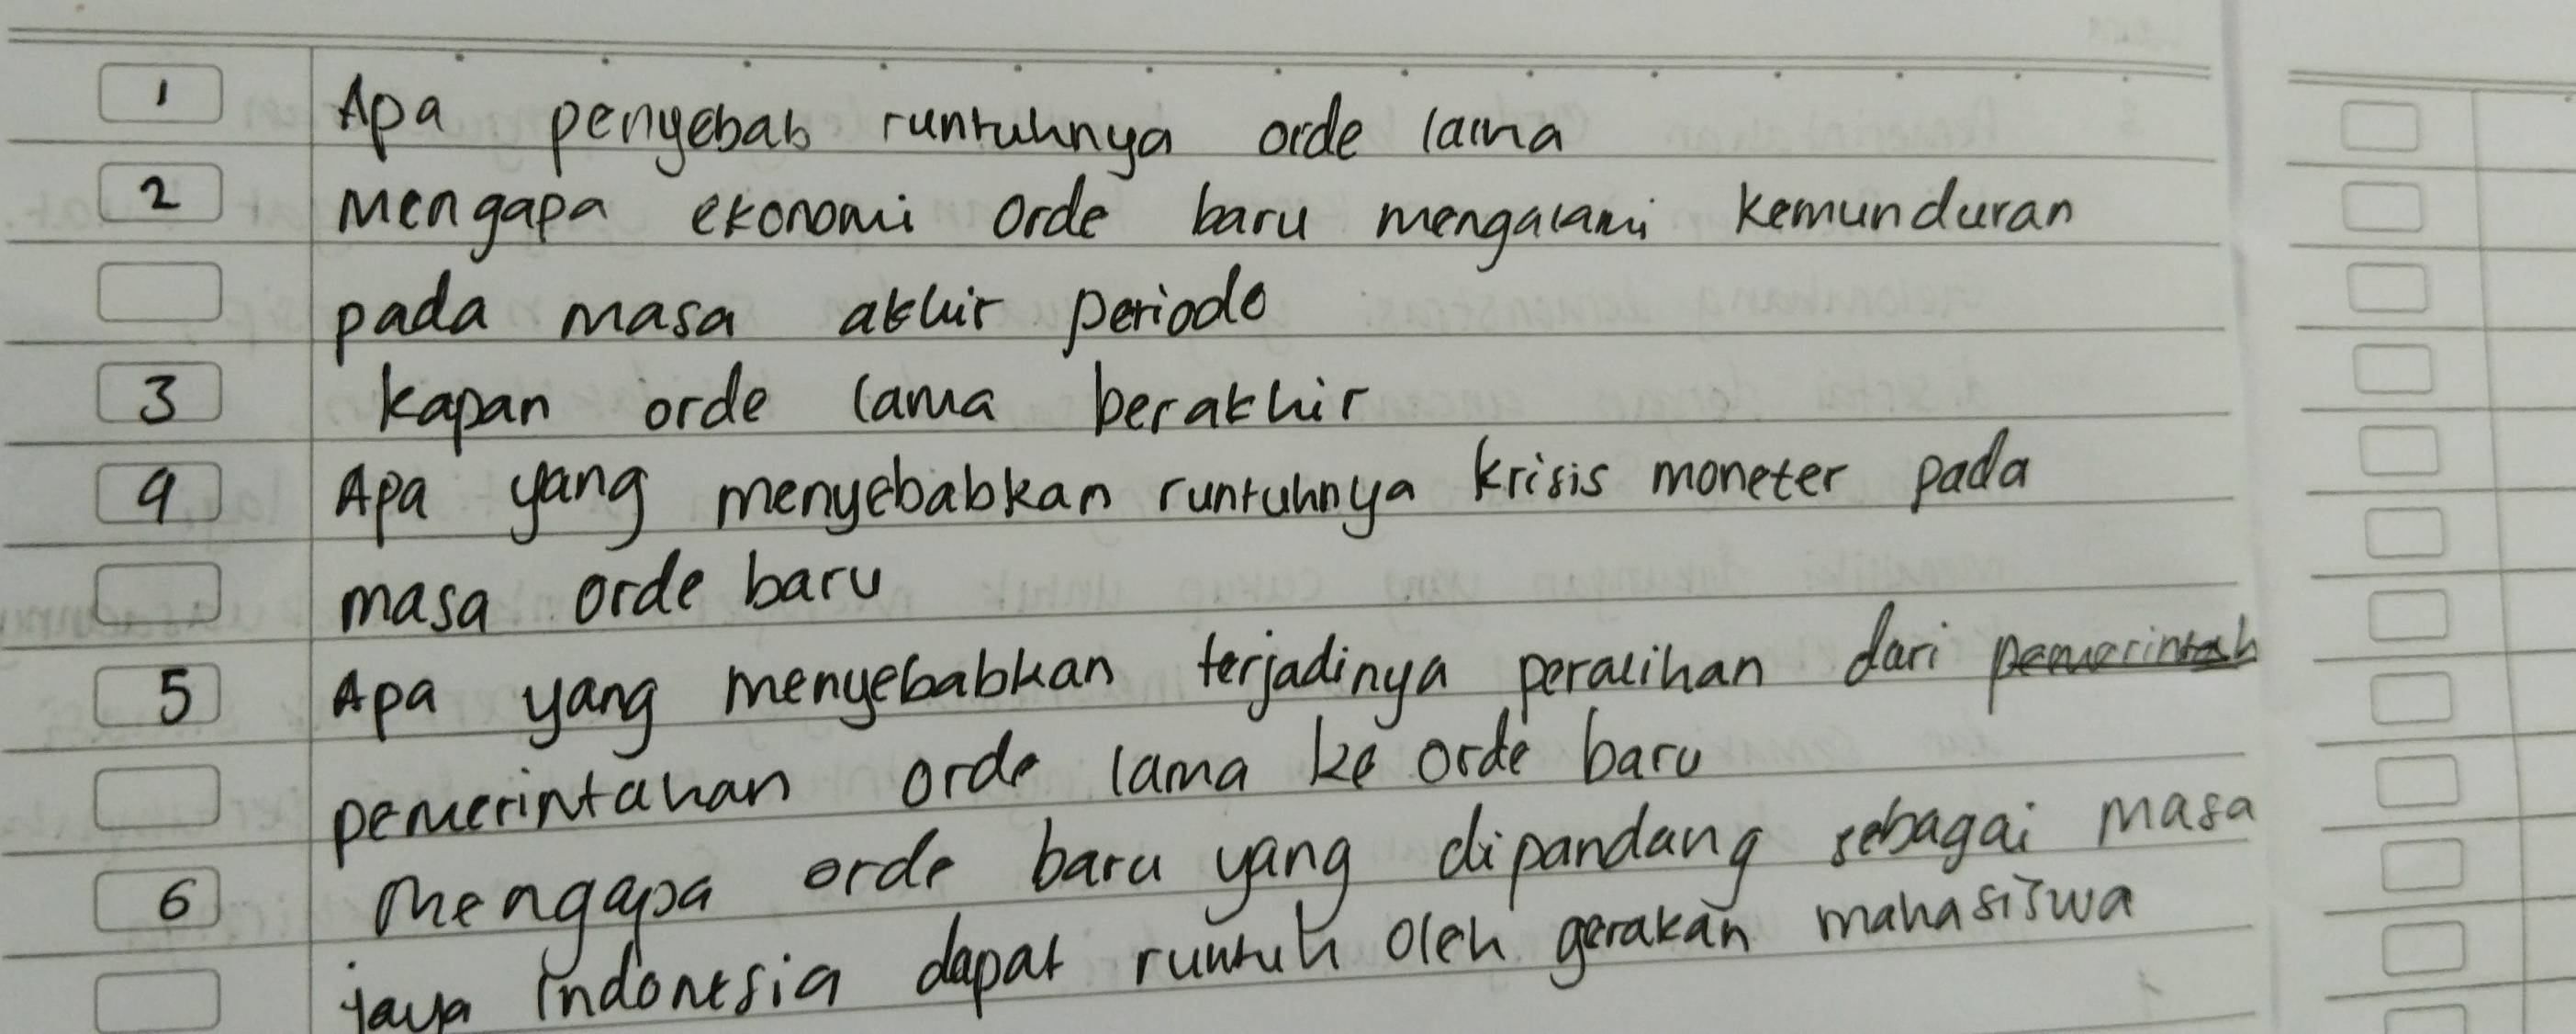 1 Apa penyebab runtuhnya orde lama
2 Mengapa ekonomi orde baru mengalami kemunduran
pada masa akhir periode
3 kapan orde lama berakhir
4 Apa yang menyebabkan runtuhnya krisis moneter pada
masa orde baru
5 Apa yang menyebabkan terjadinya peralihan dari pemerintah
pemerintahan orde lama ke orde baru
6 Mengapa orde baru yang dipandang sebagai masa
jaya indonesia dapat runtuh oleh gerakan mahasiswa